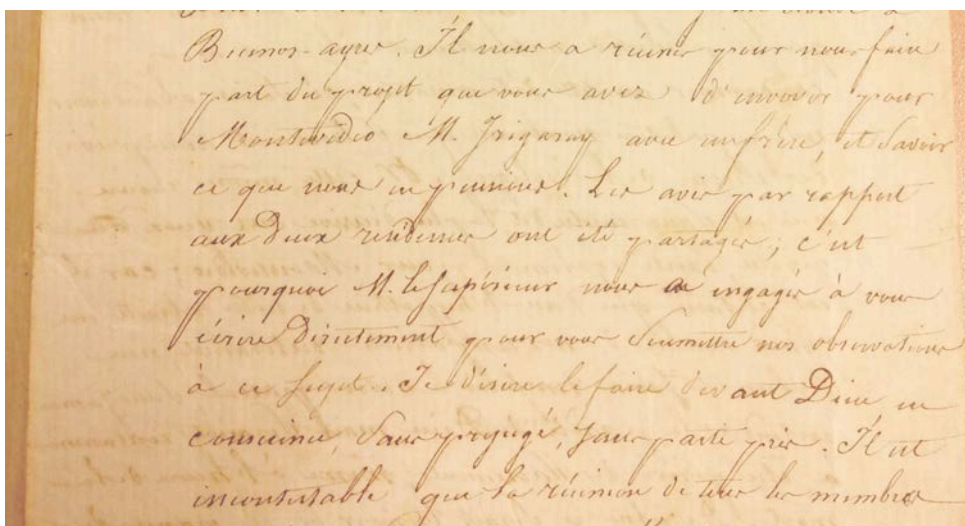 Buenos-ayres. Il nous a réunis pour nous faire
part du projet que vous avez d'envoyer pour
Montevideo M. Irigaray avec un frère, et savoir
ce que nous en pensions. Les avis par rapport
aux deux residences ont été partagés; c'est
pourquoi M. le Supérieur nous a engagés à vous
écrire directement pour vous soumettre nos observations
à ce sujet. Je désire le faire devant Dieu, en
conscience, sans préjugé, sans parti pris. Il est
incontestable que la réunion de tous les membres